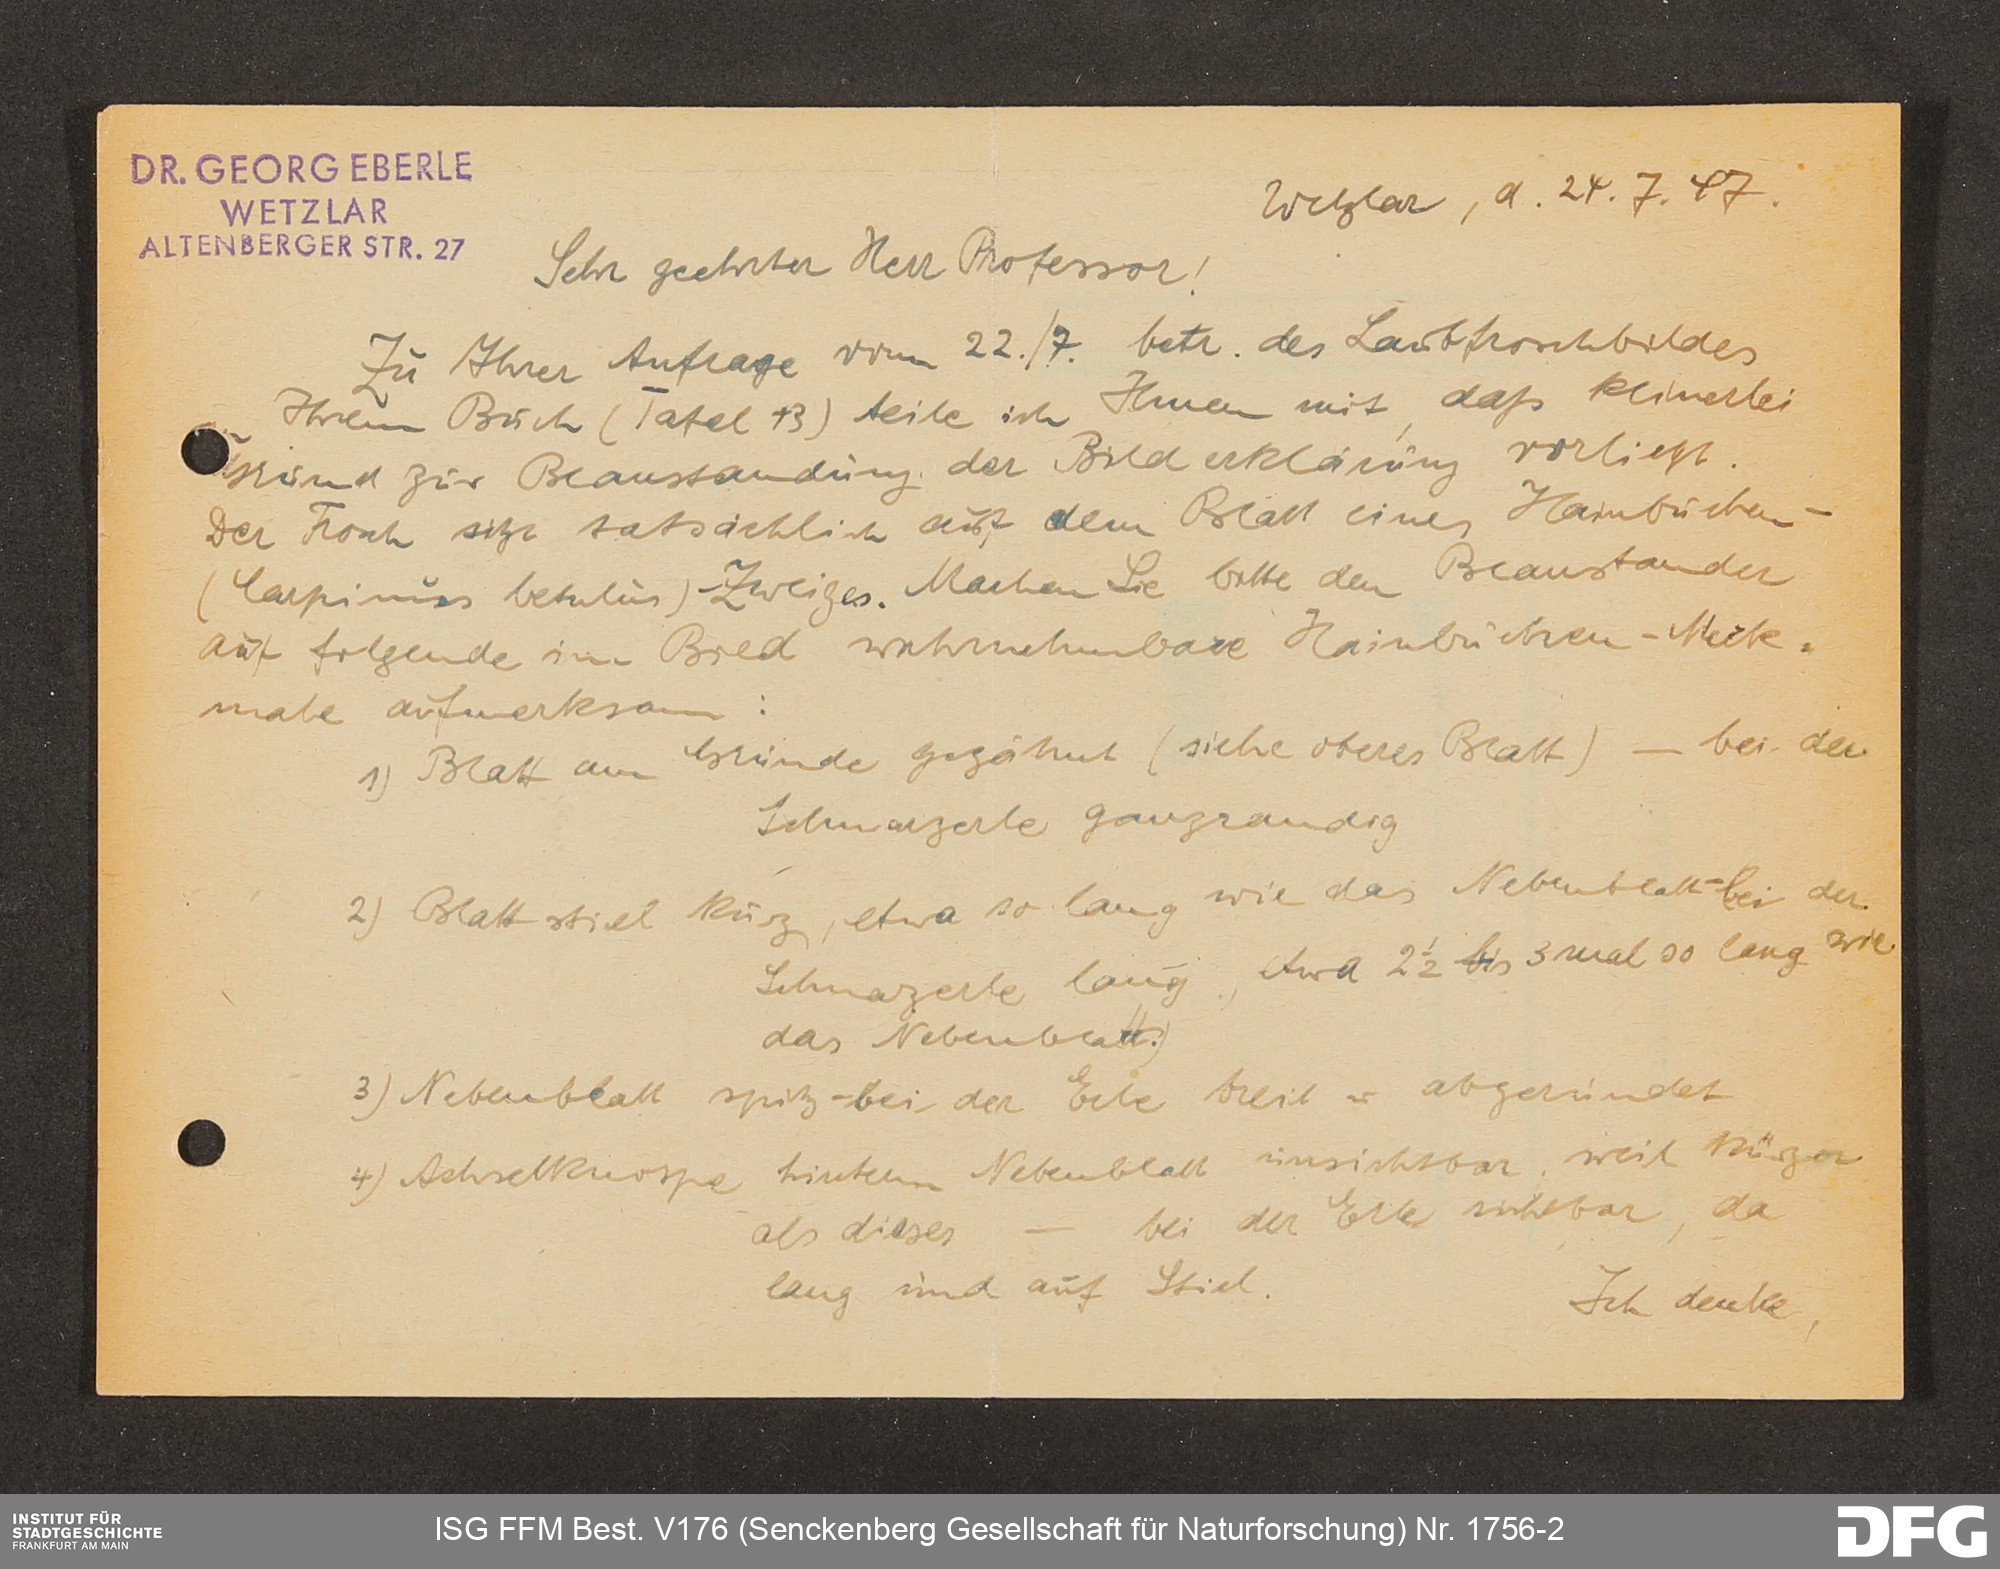 DR. GEORG EBERLE
WETZLAR
ALTENBERGER STR. 27
Wetzlar, d. 24. 7. 47.
Sehr geehrter Herr Professor!
Zu Ihrer Anfrage vom 22./7. betr. des Laubfroschbildes
Ihrem Buch (Tafel 13) teile ich Ihnen mit, daß keinerlei
Grund zur Beanstandung der Bilderklärung vorliegt.
Der Frosch sitzt tatsächlich auf dem Blatt eines Hainbuchen-
(Carpinus betulus)-Zweiges. Machen Sie bitte den Beanstander
auf folgende im Bild wahrnehmbare Hainbuchen-Merk-
male aufmerksam:
1) Blatt am Grunde gezähnt (siehe oberes Blatt) — bei der
Schwarzerle ganzrandig
2) Blattstiel kurz, etwa so lang wie das Nebenblatt - bei der
Schwarzerle lang, etwa 2½ bis 3 mal so lang wie
das Nebenblatt.)
3) Nebenblatt spitz - bei der Erle breit u abgerundet
4) Achselknospe hinterm Nebenblatt unsichtbar, weil kürzer
als dieses — bei der Erle sichtbar, da
lang und auf Stiel.
Ich denke,
INSTITUT FÜR
STADTGESCHICHTE
FRANKFURT AM MAIN
ISG FFM Best. V176 (Senckenberg Gesellschaft für Naturforschung) Nr. 1756-2
DFG